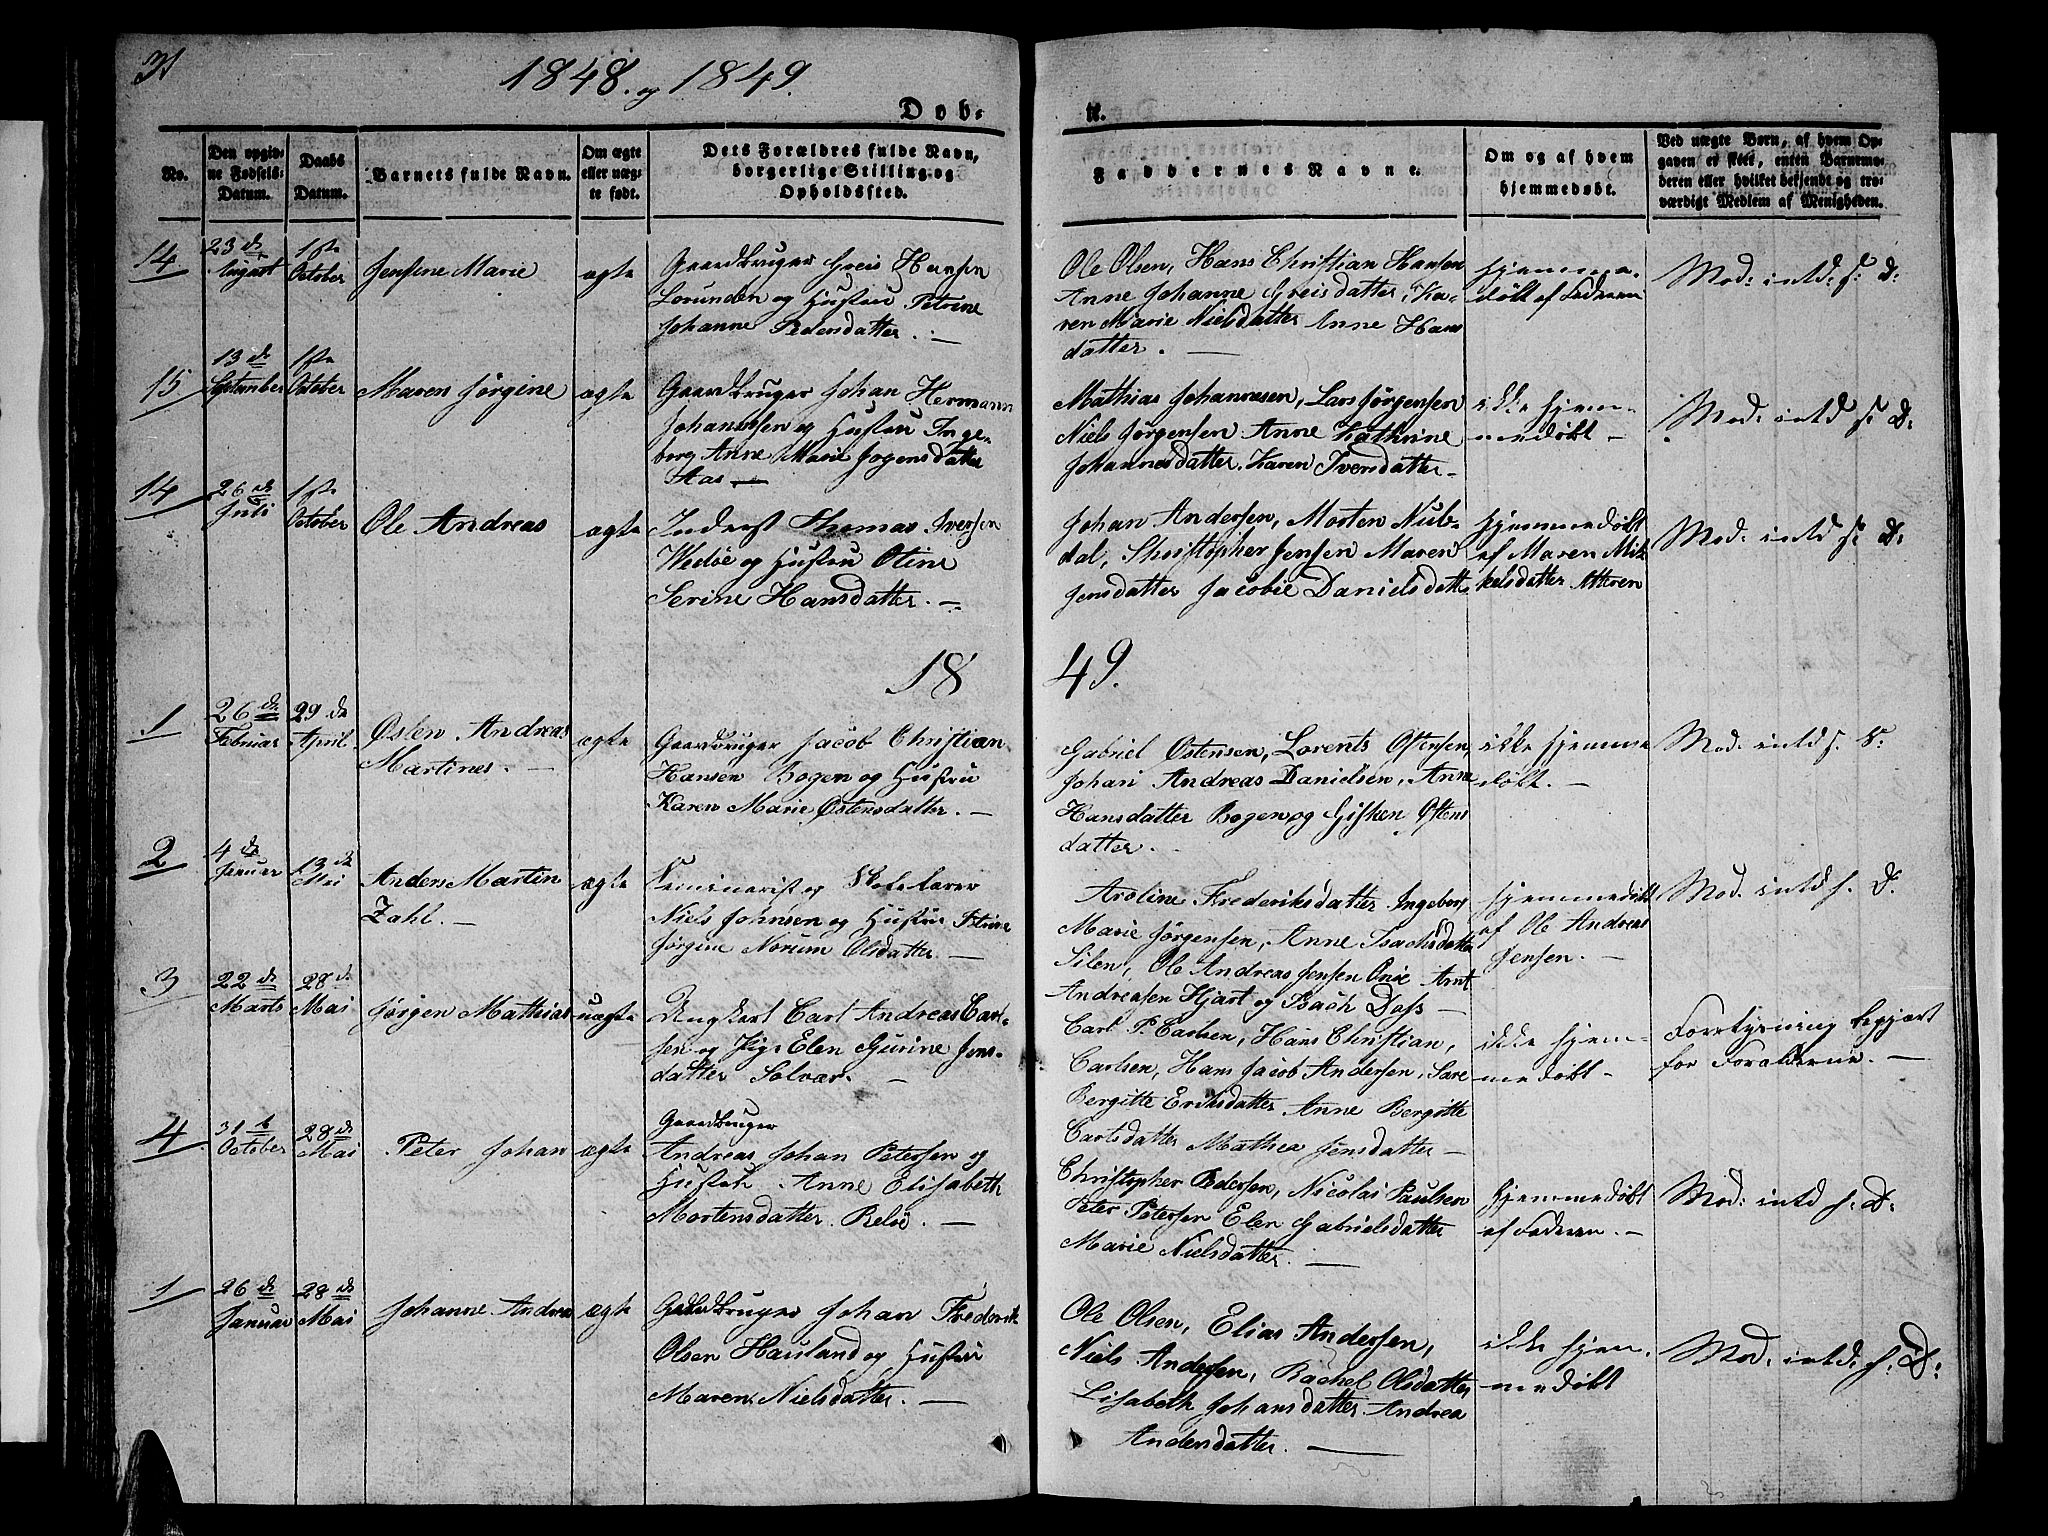 31
1848. og 1849.
Døb-
te.
No.
Den opgiv-
ne Fødsels-
Datum.
Daabs
Datum.
Barnets fulde Navn.
Om ægte
eller uæg-
te født.
Dets Forældres fulde Navn,
borgerlige Stilling og
Opholdssted.
Faddernes Navne.
Om og af hvem
hjemmedøbt.
Ved uægte Børn, af hvem Op-
gaven er skeet, enten Barnemo-
deren eller hvilket bekjendt og tro-
værdigt Medlem af Menigheden.
14
23 de
August
1ste
October
Jensine Marie
ægte
Gaardbruger Greis Hansen
Lorunden og Hustru Petrine
Johanne Pedersdatter. —
Ole Olsen, Hans Christian Hansen
Anne Johanne Greisdatter, Ka-
ren Marie Nielsdatter Anne Hans
datter. —
hjemme-
døbt af Faderen
Mod: intd: f: D:
15
13 de
September
1ste
October
Maren Jørgine
ægte
Gaardbruger Johan Hermann
Johannesen og Hustru Inge-
borg Anne Marie Jogensdatter
Aas —
Mathias Johannesen, Lars Jørgensen
Niels Jørgensen Anne Kathrine
Johannesdatter. Karen Iversdatter —
ikke hjem-
medøbt —
Mod: intd f. D:
14
26 de
Juli
1ste
October
Ole Andreas
ægte
Inderst Thomas Iversen
Wedøe og Hustru Oline
Serine Hansdatter. —
Johan Andersen, Morten Nub-
dal, Christopher Jensen Maren
Jensdatter Jacobie Danielsdatt
hjemmedøbt
af Maren Mik
kelsdatter Atteren
Mod: intd f: D:
18
49.
1
26 de
Februar
29 de
April
Østen Andreas
Martines. —
ægte
Gaardbruger Jacob Christian
Hansen Bogen og Hustru
Karen Marie Østensdatter. —
Gabriel Østensen, Lorents Østensen,
Johan Andreas Danielsen, Anne
Hansdatter Bogen og Gisken Østens
datter. —
ikke hjemme
døbt. —
Mod: intd f. D:
2
4 de
Januar
13 de
Mai
Anders Martin
Zahl. —
ægte
Seminarist og Skolelærer
Niels Johnsen og Hustru Petrine
Jørgine Norum Olsdatter. —
Aroline Frederiksdatter Ingeborg
Marie Jørgensen, Anne Isachsdatter
Silen, Ole Andreas Jensen Onøe Arnt
Andreasen Hjart og Isach Dass —
hjemmedøbt
af Ole Andreas
Jensen. —
Mod. intd f. D.
3
22 de
Marts
28 de
Mai
Jørgen Mathias
uægte
Ungkarl Carl Andreas Carl-
sen og Pige Elen Gurine Jens-
datter Solvær. —
Carl P. Carlsen, Hans Christian,
Carlsen, Hans Jacob Andersen, Sare
Bergitte Eriksdatter Anne Bergitte
Carlsdatter Mathea Jensdatter —
ikke hjem-
medøbt —
Forrtysning begjært
for Forældrene. —
4
31 te
October
28 de
Mai
Peter Johan
ægte
Gaardbruger
Andreas Johan Petersen og
Hustru Anne Elisabeth
Mortensdatter. Selsø. —
Christopher Pedersen, Nicolai Paulsen
Peter Petersen Elen Gabrielsdatter
Marie Nielsdatter. —
hjemmedøbt
af Faderen. —
Mod: intd f. D:
1
26 de
Januar
28 de
Mai
Johanne Andrea
ægte
Gaardbruger Johan Frederik
Olsen Haisland og Hustru
Maren Nielsdatter. —
Ole Olsen, Elias Andersen,
Niels Andersen, Rachel Olsdatter
Lisabeth Johansdatter Andrea
Andersdatter. —
ikke hjem-
medøbt
Mod: intd: f: D: